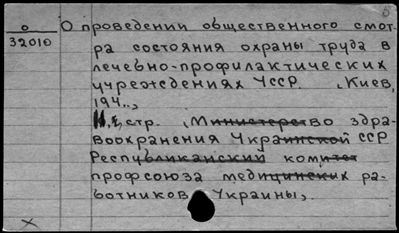 О О проведении общественного смот-
32010 ра состояния охраны труда в
лечебно-профилактических
учреждениях УССР. Киев,
194..,
стр. (Министерство здра-
воохранения Украинской ССР
Республиканский комитет
профсоюза медицинских ра-
ботников Украины),